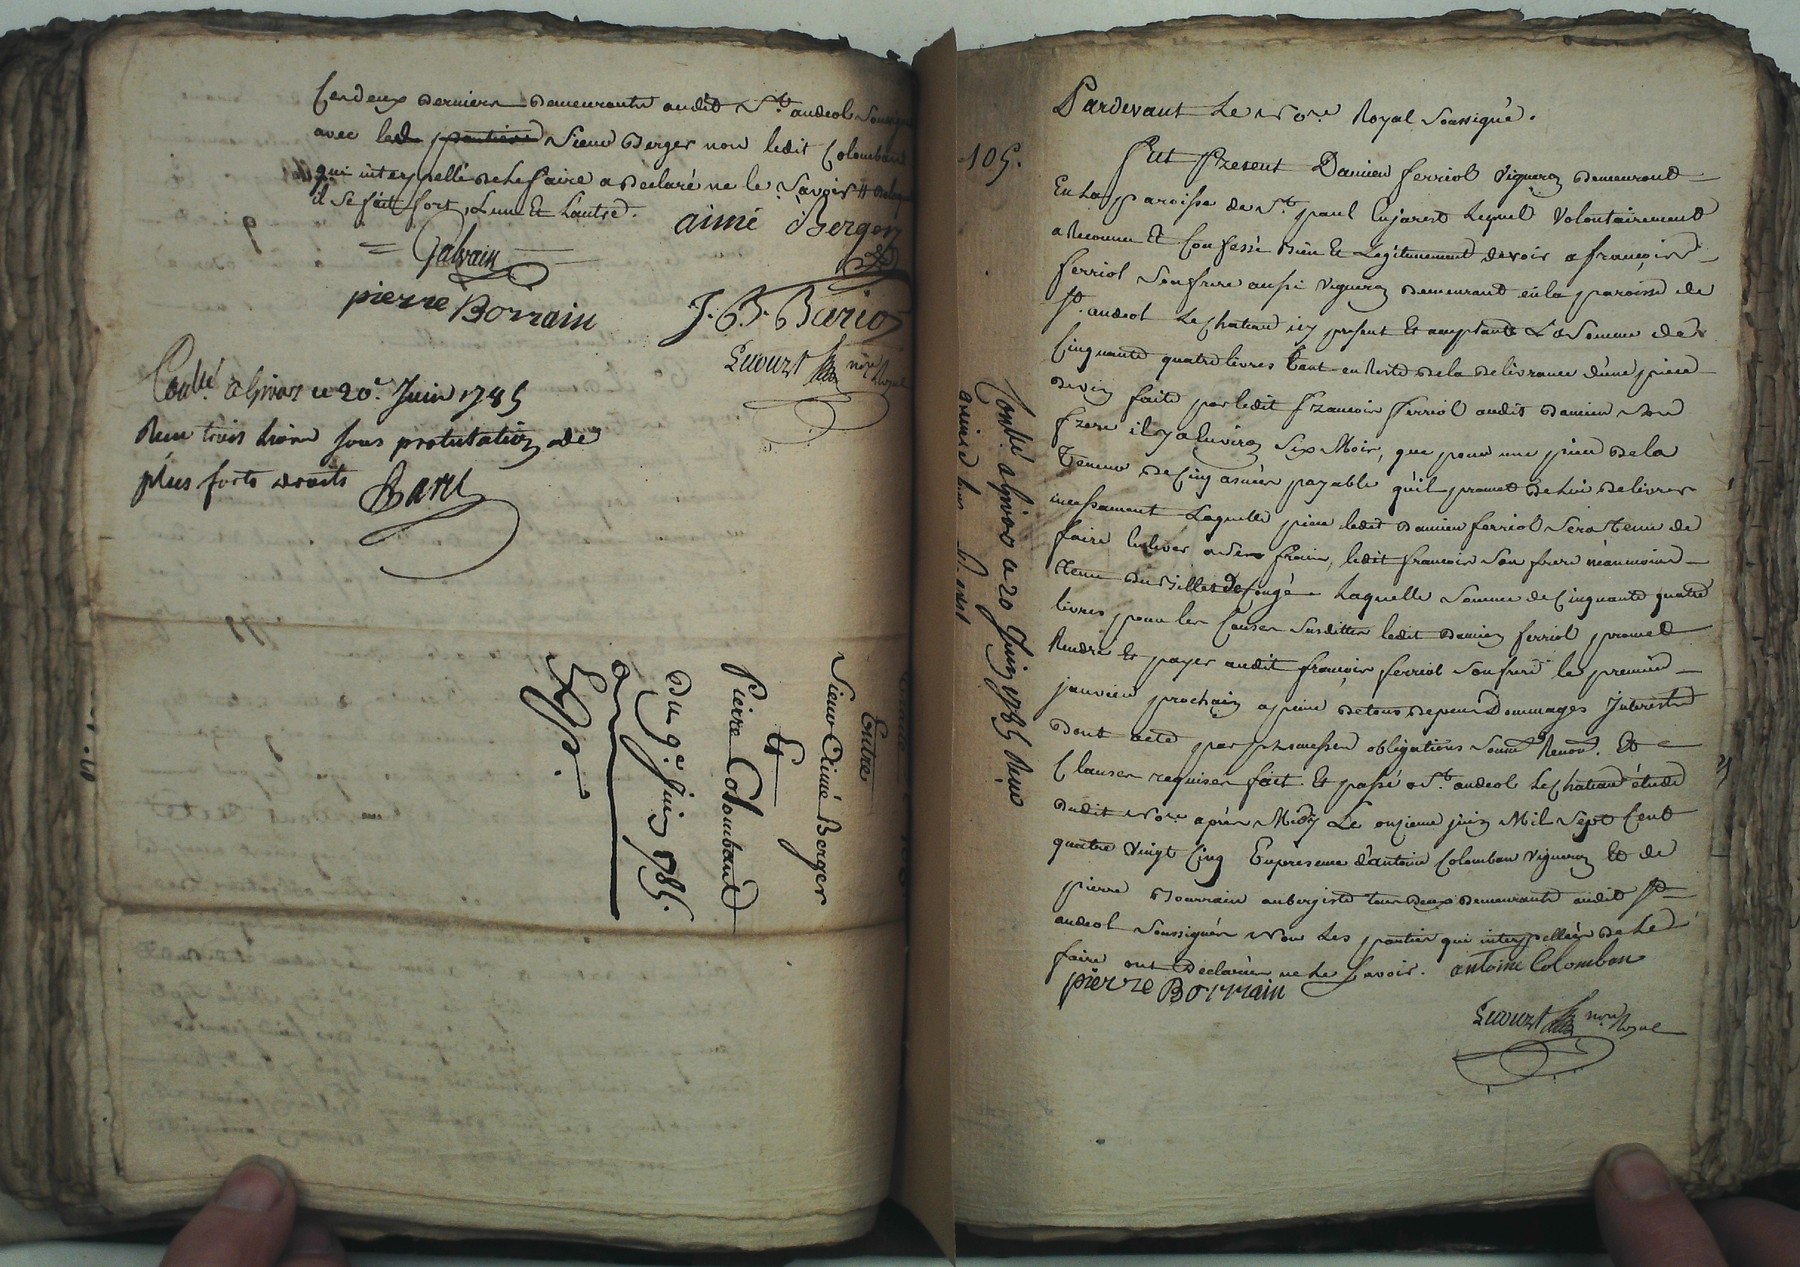 Ces deux derniers demeurants audit St. andeol Soussignés
avec led. parties Sieur Berger non ledit Colomband
qui interpellé de Le faire a declaré ne le Savoir
il Se fait fort, L'un Et L'autre.
aimé Berger
Galvain
pierre Borrain
J. B. Bario
Ecourt nore Royal
Contlé a Givors ce 20e. Juin 1785
Reçu trois livres sous protestation de
plus forts droits Barel
Entre
Sieur Aimé Berger
Et
Pierre Colomband
Du 9e. Juin 1785.
Exp.
105.
Pardevant Le Nore. Royal Soussigné.
Fut Present Damien ferriol Vigneron demeurant
En La paroisse de St. paul En jarest Lequel Volontairement
a Reconnu Et Confessé bien Et Légitimement devoir a françois
ferriol Son frere aussi Vigneron demeurant en la paroisse de
St. andeol Le chateau icy present Et acceptant La Somme de
Cinquante quatre livres tant en Reste de la delivrance d'une piece
de vin faite par ledit françois ferriol audit Damien Son
frere il y a Environ Six Mois, que pour une piece de la
Teneur de Cinq asnées payable qu'il promet de Lui delivrer
incessament Laquelle piece ledit Damien ferriol Sera tenu de
faire Enlever a Ses fraix, ledit françois Son frere néanmoins
tenu
Laquelle Somme de Cinquante quatre
livres pour les Causes Susdittes ledit Damien ferriol promet
Rendre Et payer audit françois ferriol Son frere le premier
janvier prochain a peine de tous depens Dommages Interests
Dont acte par promesses obligations Soum. Renon. Et
Clauses requises fait Et passé a St. andeol Le chateau étude
dudit Nore. après Midy Le onzieme juin Mil Sept Cent
quatre Vingt Cinq En presence d'antoine Colomban Vigneron Et de
pierre Bourrain aubergiste tous deux demeurants audit St.
andeol Soussignés Non Les parties qui interpellées de Le
faire ont Declarées ne Le Savoir. antoine Colomban
pierre Borrain
Ecourt nore Royal
Contlé a Givors ce 20 Juin 1785 Reçu